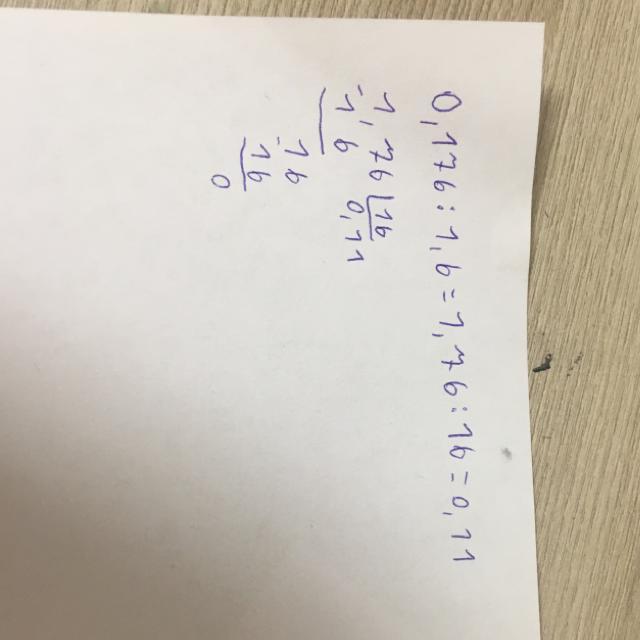 0,176:1,6=1,76:16=0,11
1,76 | 16
-1 6 0,11
-16
16
0